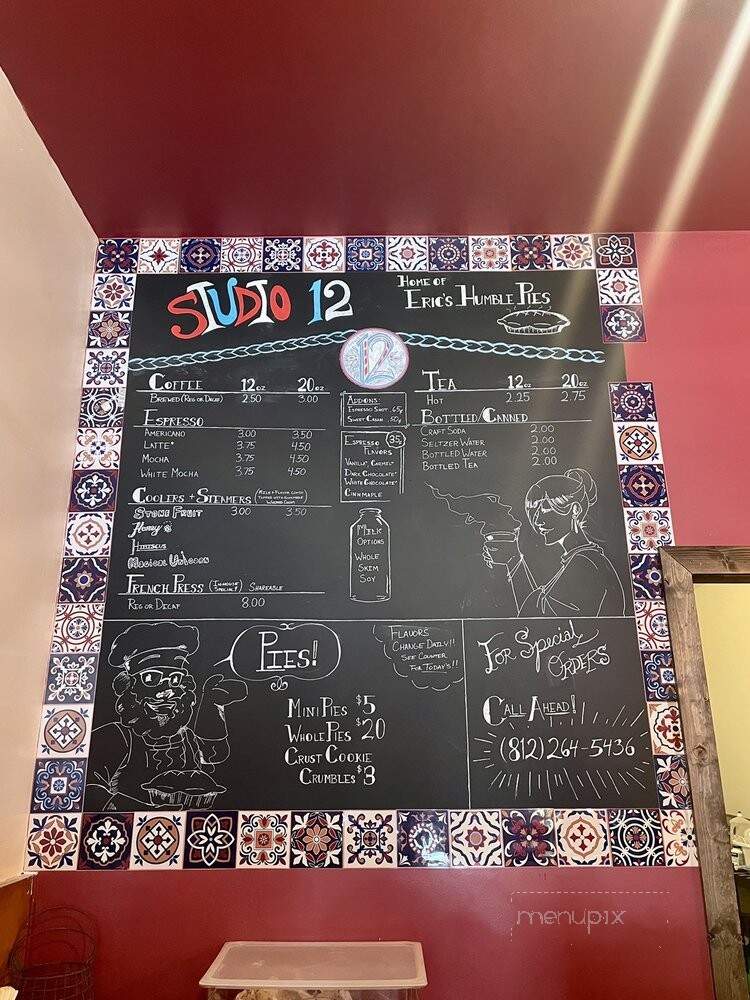 STUDIO 12
HOME OF
ERIC'S HUMBLE PIES
12
COFFEE 12oz 20oz
BREWED (REG OR DECAF) 2.50 3.00
ESPRESSO
AMERICANO 3.00 3.50
LATTE* 3.75 4.50
MOCHA 3.75 4.50
WHITE MOCHA 3.75 4.50
COOLERS + STEAMERS (MILK + FLAVOR COMBO TOPPED WITH HOMEMADE WHIPPED CREAM)
STONE FRUIT 3.00 3.50
HONEY
HIBISCUS
MAGICAL UNICORN
FRENCH PRESS (INHOUSE SPECIALTY) SHAREABLE
REG OR DECAF 8.00
ADD-ONS:
ESPRESSO SHOT .65¢
SWEET CREAM .50¢
ESPRESSO 35¢
FLAVORS
VANILLA* CARMEL*
DARK CHOCOLATE*
WHITE CHOCOLATE*
CINNMAPLE
MILK
OPTIONS
WHOLE
SKIM
SOY
TEA 12oz 20oz
HOT 2.25 2.75
BOTTLED/CANNED
CRAFT SODA 2.00
SELTZER WATER 2.00
BOTTLED WATER 2.00
BOTTLED TEA 2.00
PIES!
MINI PIES $5
WHOLE PIES $20
CRUST COOKIE
CRUMBLES $3
FLAVORS
CHANGE DAILY!!
SEE COUNTER
FOR TODAY'S!!
FOR SPECIAL
ORDERS
CALL AHEAD!
(812) 264-5436
menupix